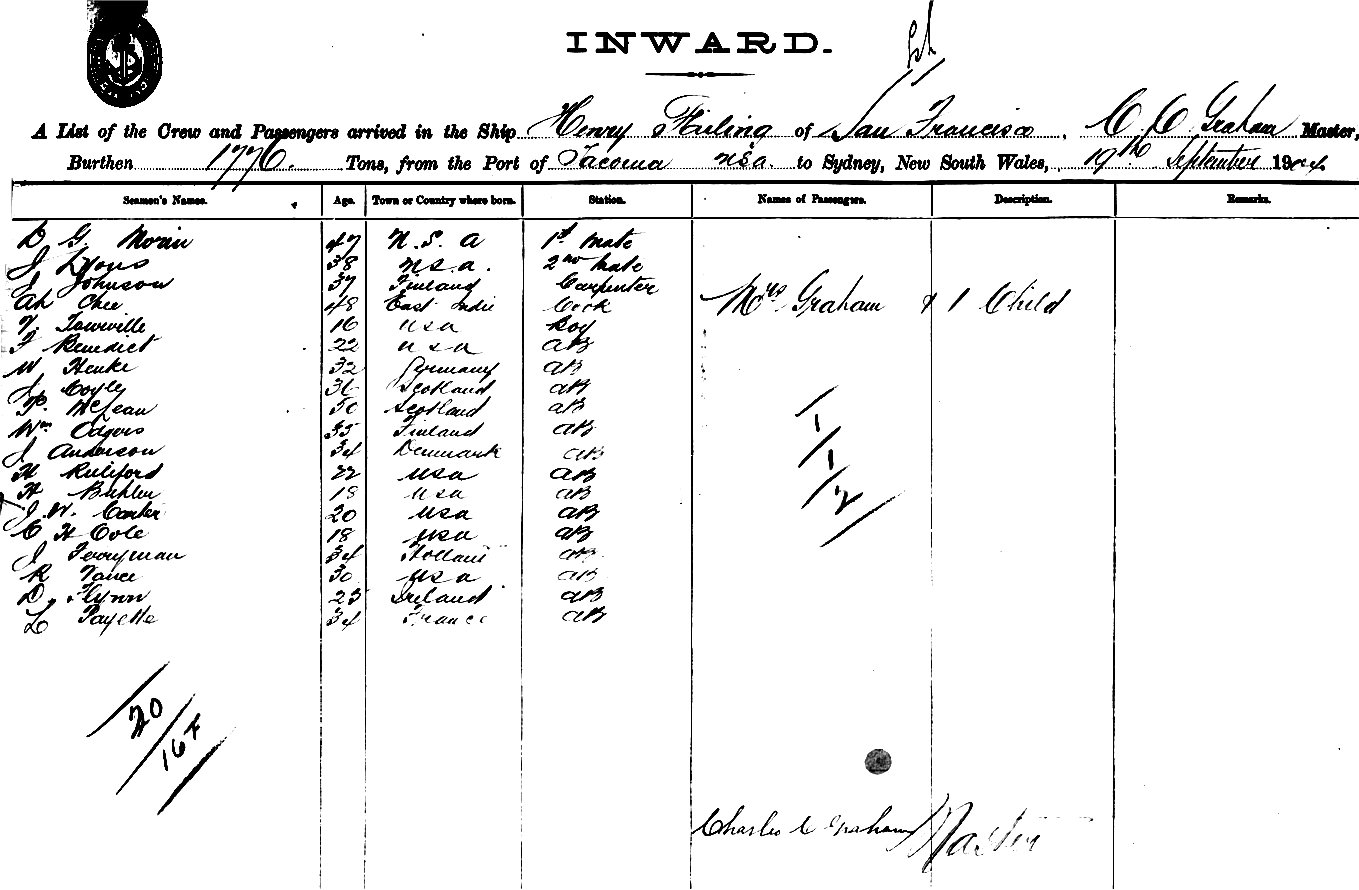 INWARD.
A List of the Crew and Passengers arrived in the Ship Henry of San Francisco, C. C. Graham Master,
Burthen 1776. Tons, from the Port of Tacoma U.S.a. to Sydney, New South Wales, 19th September 1904
Seamen's Names. Age. Town or Country where born. Station. Names of Passengers. Description. Remarks.
D G. Morin 47 U.S.A 1st Mate
J Lyons 38 U.S.a. 2nd Mate
J Johnson 37 Finland Carpenter
Ah Chee 48 East Indie Cook Mrs Graham & 1 Child
16 USA Boy
F Benedict 22 USA AB
W Henke 32 Germany AB
J Coyle 36 Scotland AB
P. McLean 50 Scotland AB
Wm Odgers 35 Finland AB
J Anderson 34 Denmark AB
H Ruliford 22 USA AB
H Buhler 18 USA AB
J. W. Carter 20 USA AB
C H Cole 18 USA AB
J Ferryman 34 Holland AB
R Vance 30 USA AB
D. Flynn 23 Ireland AB
L Payette 34 France AB
1
1
2
20
16 F
Charles C Graham Master